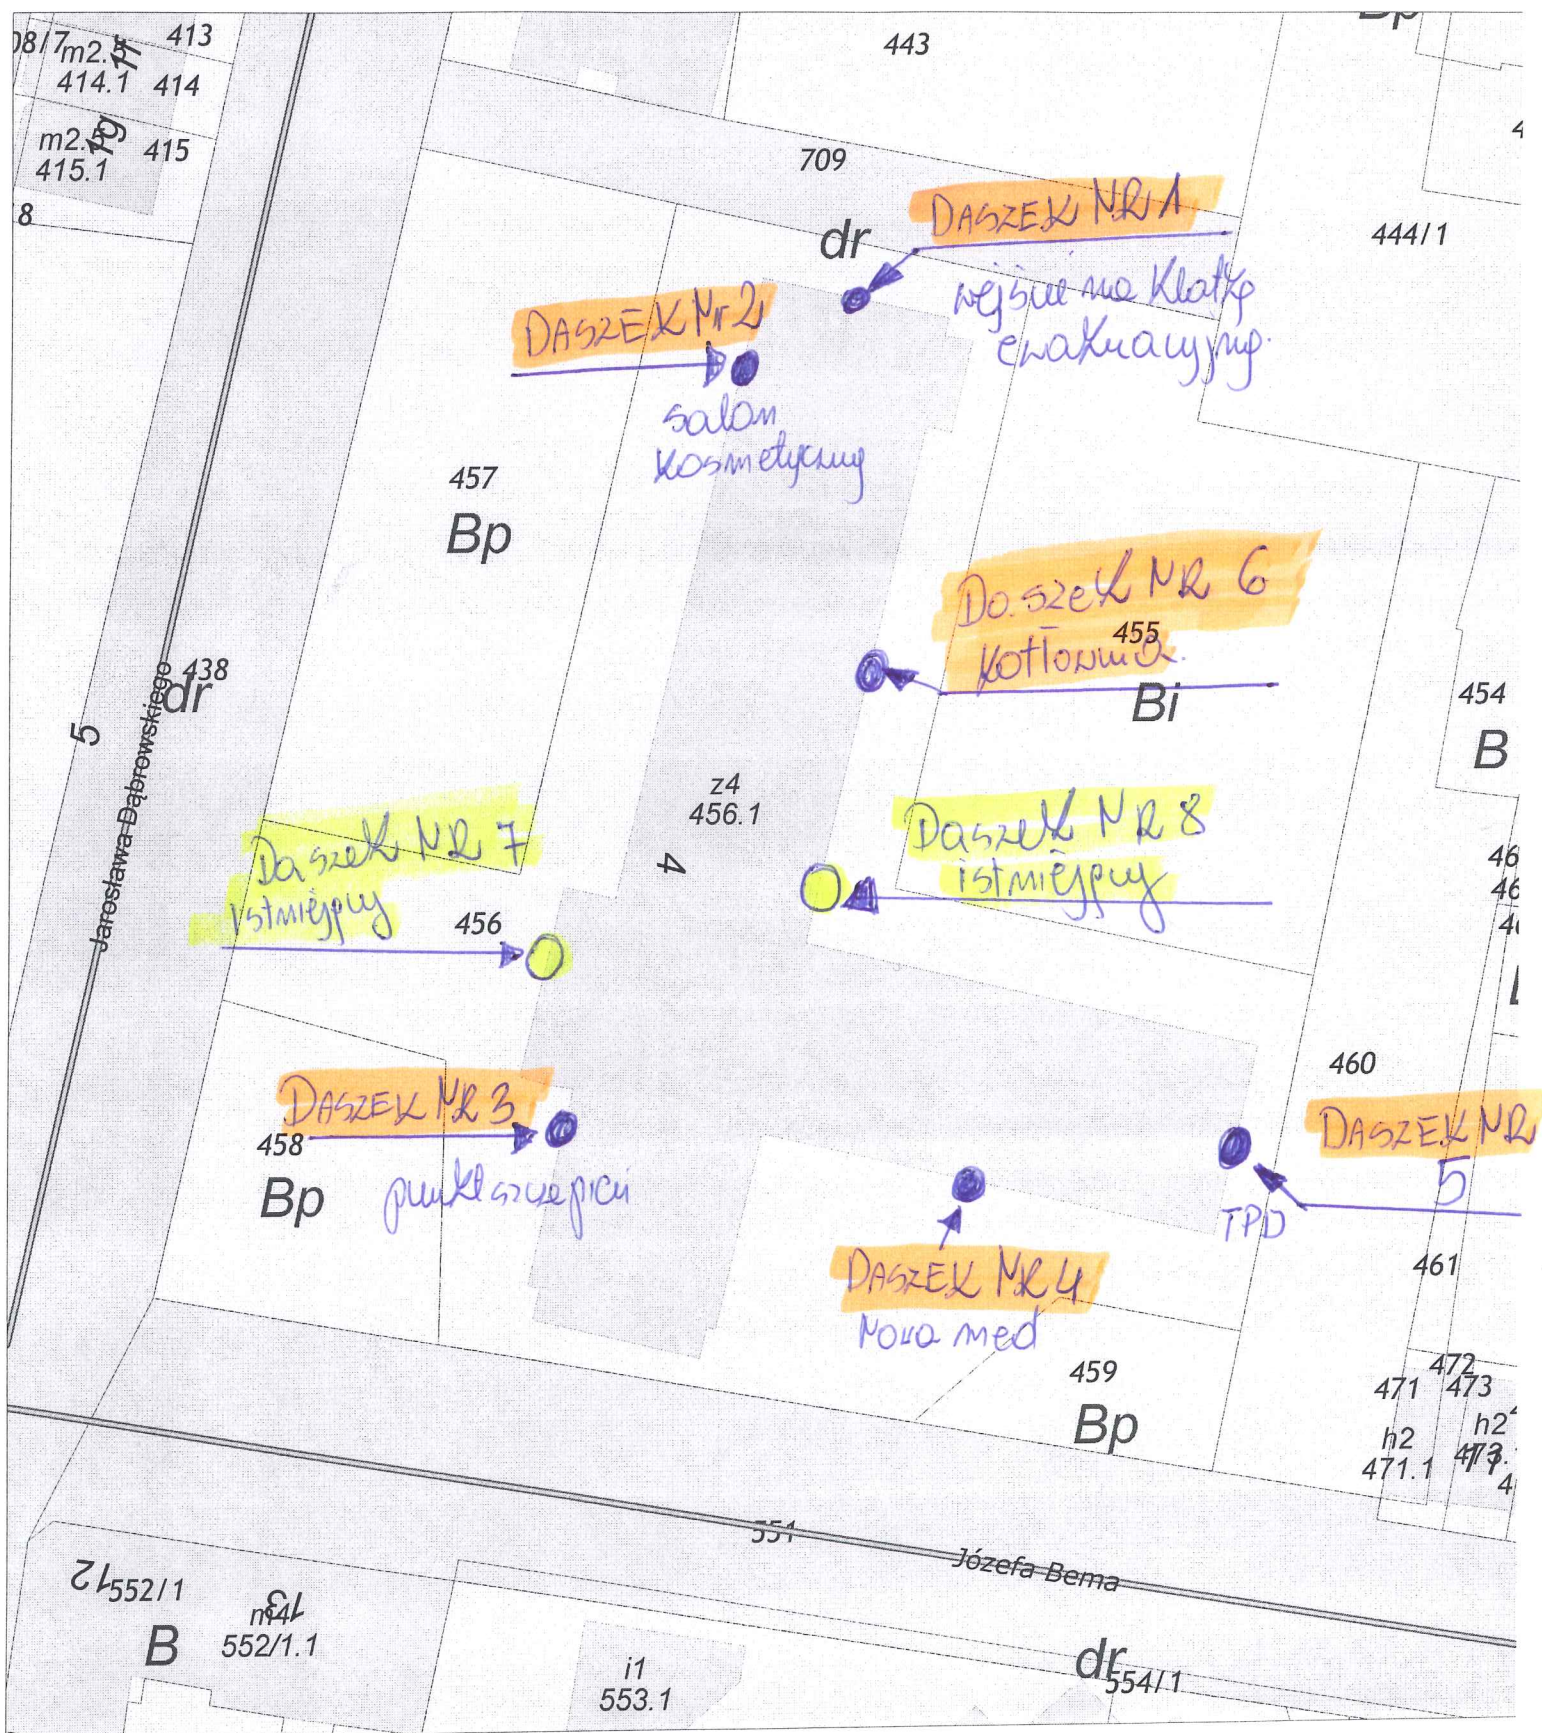 413
m2.
414.1
414
1f
m2.5
415.1
1g
415
8
443
709
dr
444/1
DASZEK NR 1
wejście na klatkę
ewakuacyjną.
DASZEK Nr 2
salon
kosmetyczny
457
Bp
Daszek NR 6
kotłownia
455
Bi
454
B
438
dr
5
Jarosława Dąbrowskiego
z4
456.1
4
Daszek NR 7
istniejący
456
Daszek NR 8
istniejący
460
DASZEK NR 3
458
Bp
punkt szczepień
DASZEK NR
5
TPD
DASZEK NR 4
Nova med
461
459
Bp
472
471
473
h2
471.1
h2
473.
551
Józefa Bema
12
552/1
B
13
m4
552/1.1
i1
553.1
dr
554/1